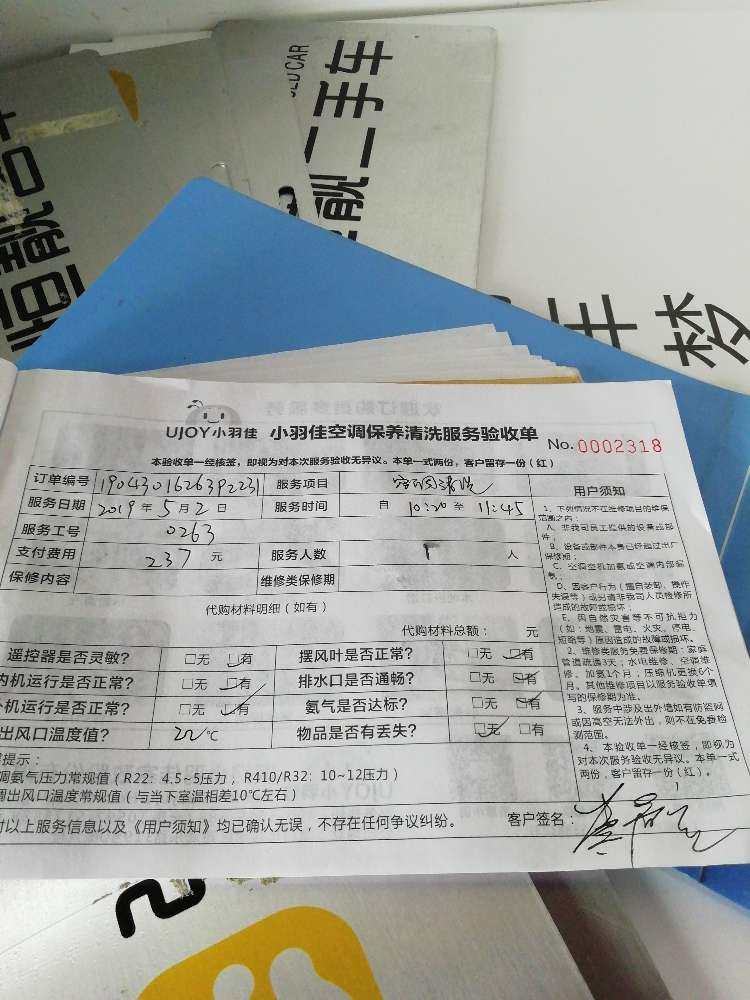 USED CAR
恒靓二手车
UJOY小羽佳 小羽佳空调保养清洗服务验收单 No. 0002318
本验收单一经核签，即视为对本次服务验收无异议。本单一式两份，客户留存一份（红）
订单编号 1904301626392231 服务项目
服务日期 2019年5月2日 服务时间 自 10:20 至 11:45
服务工号 0263
支付费用 237 元 服务人数 1 人
保修内容 维修类保修期
代购材料明细（如有）
代购材料总额： 元
遥控器是否灵敏？ □无 □有 摆风叶是否正常？ □无 □有
内机运行是否正常？ □无 □有 排水口是否通畅？ □无 □有
外机运行是否正常？ □无 □有 氨气是否达标？ □无 □有
出风口温度值？ ℃ 物品是否有丢失？ □无 □有
提示：
调氨气压力常规值（R22：4.5~5压力，R410/R32：10~12压力）
调出风口温度常规值（与当下室温相差10℃左右）
对以上服务信息以及《用户须知》均已确认无误，不存在任何争议纠纷。 客户签名：
用户须知
1、下列情况不在维修项目的维保
范围之内：
A、非我司员工提供的设备或部
件；
B、设备或部件本身已经超过出厂
保修期；
C、空调空机加氨或空调内部漏
氨；
D、因客户行为（擅自装卸、操作
失误等）或另请非我司人员检修所
造成的故障或损坏；
E、因自然灾害等不可抗拒力
（如：地震、雷电、火灾、停电、
短路等）原因造成的故障或损坏。
2、维修类服务免费保修期：家庭
管道疏通3天；水电维修、空调维
修、加氨1个月；压缩机更换6个
月。其他维修项目以服务验收单填
写的保修期为准。
3、服务中涉及出外墙如有防盗网
或因高空无法外出，则不在免费检
测范围。
4、本验收单一经核签，即视为
对本次服务验收无异议。本单一式
两份，客户留存一份（红）。